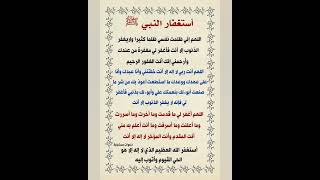 أستغفار النبي ﷺ
اللهم إني ظلمت نفسي ظلما كثيرا ولا يغفر
الذنوب إلا أنت فأغفر لي مغفرة من عندك
وأرحمني إنك أنت الغفور الرحيم
اللهم أنت ربي لا إله إلا أنت خلقتني وأنا عبدك وأنا
على عهدك ووعدك ما استطعت أعوذ بك من شر ما
صنعت أبوء لك بنعمتك علي وأبوء لك بذنبي فأغفر
لي فإنه لا يغفر الذنوب إلا أنت
اللهم أغفر لي ما قدمت وما أخرت وما أسررت
وما أعلنت وما أسرفت وما أنت أعلم به مني
أنت المقدم وأنت المؤخر لا إله إلا أنت
أستغفر الله العظيم الذي لا إله إلا هو
الحي القيوم وأتوب إليه